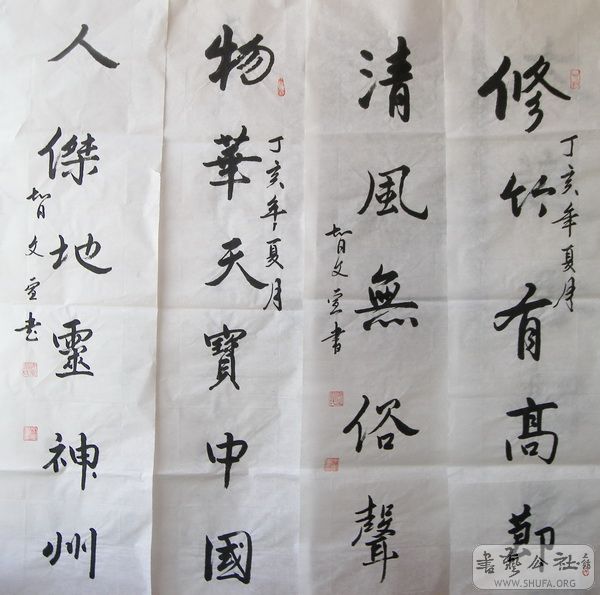 修竹有高節
丁亥年夏月
清風無俗聲
智文書
物華天寶中國
丁亥年夏月
人傑地靈神州
智文书
書藝公社
WWW.SHUFA.ORG